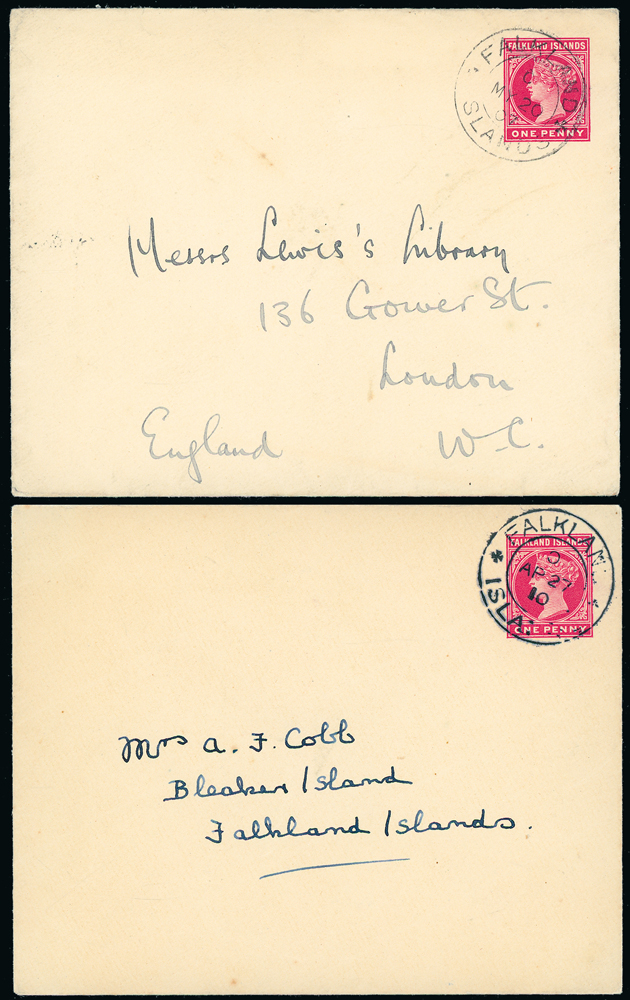 FALKLAND ISLANDS
FALKLAND ISLANDS
ONE PENNY
Messrs Lewis's Library
136 Gower St.
London
England W.C.
FALKLAND ISLANDS
FALKLAN
AP 27
10
ISLA
ONE PENNY
Mrs A. F. Cobb
Bleaker Island
Falkland Islands.